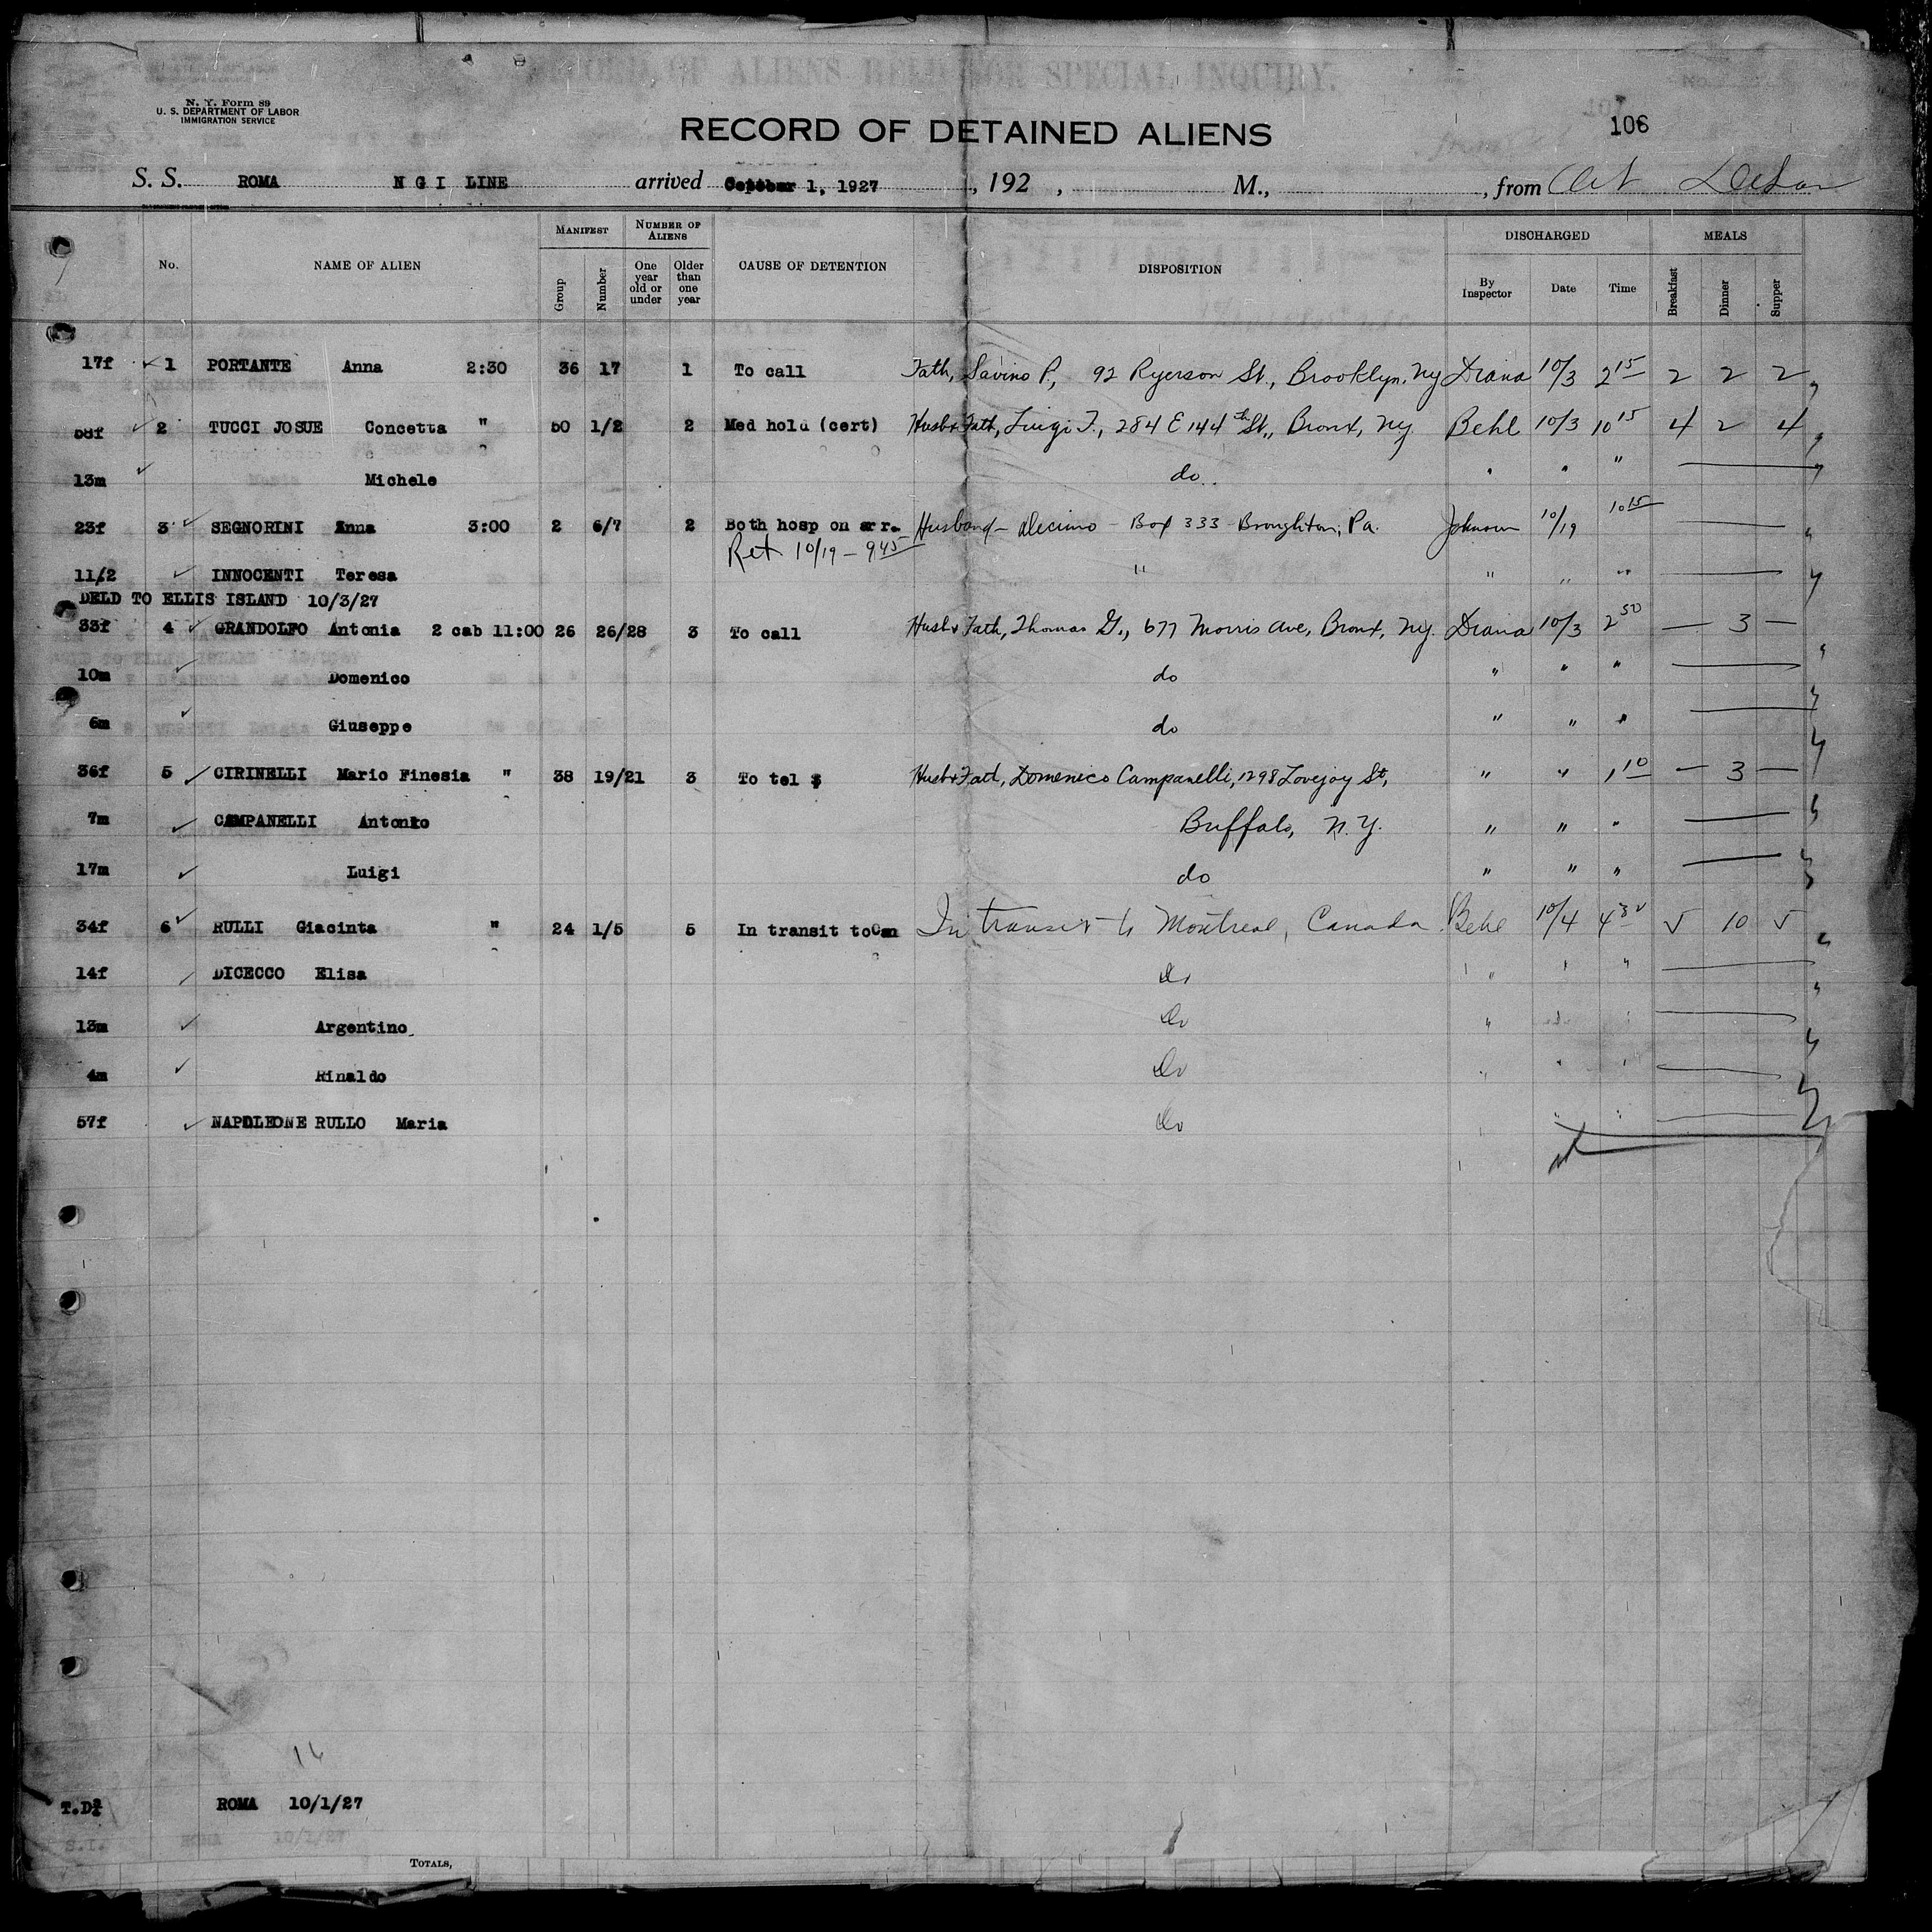 RECORD OF ALIENS HELD FOR SPECIAL INQUIRY.
N. Y. Form 89
U. S. DEPARTMENT OF LABOR
IMMIGRATION SERVICE
RECORD OF DETAINED ALIENS
106
S. S. ROMA N G I LINE arrived October 1, 1927, 192 , M., , from
No. NAME OF ALIEN MANIFEST Group Number NUMBER OF ALIENS One year old or under Older than one year CAUSE OF DETENTION DISPOSITION DISCHARGED By Inspector Date Time MEALS Breakfast Dinner Supper
17f 1 PORTANTE Anna 2:30 36 17 1 To call Fath, Savino P., 92 Ryerson St., Brooklyn, NY Diana 10/3 2 15 2 2 2
58f 2 TUCCI JOSUE Concetta " 50 1/2 2 Med hold (cert) Husb+Fath, Luigi T., 284 E 144th St., Bronx, NY. Behl 10/3 10 15 4 2 4
13m Michele do. " " "
23f 3 SEGNORINI Anna 3:00 2 6/7 2 Both hosp on arr. Husband - Decimo - Box 333 - Broughton, Pa. Johnson 10/19 10 15
Ret 10/19 - 9 45
11/2 INNOCENTI Teresa " " " "
DELD TO ELLIS ISLAND 10/3/27
33f 4 GRANDOLFO Antonia 2 cab 11:00 26 26/28 3 To call Husb+Fath, Thomas G., 677 Morris Ave, Bronx, NY. Diana 10/3 2 50 — 3 —
10m Domenico do " " "
6m Giuseppe do " " "
36f 5 CIRINELLI Mario Finesia " 38 19/21 3 To tel $ Husb+Fath, Domenico Campanelli, 1298 Lovejoy St, " " 1 10 — 3 —
7m CAMPANELLI Antonio Buffalo, N.Y. " " "
17m Luigi do " " "
34f 6 RULLI Giacinta " 24 1/5 5 In transit to Can In transit to Montreal, Canada Behl 10/4 4 30 5 10 5
14f DICECCO Elisa Do " " "
13m Argentino Do " " "
4m Rinaldo Do " " "
57f NAPOLEONE RULLO Maria Do " "
16
T.D ROMA 10/1/27
S.I. ROMA 10/1/27
TOTALS,